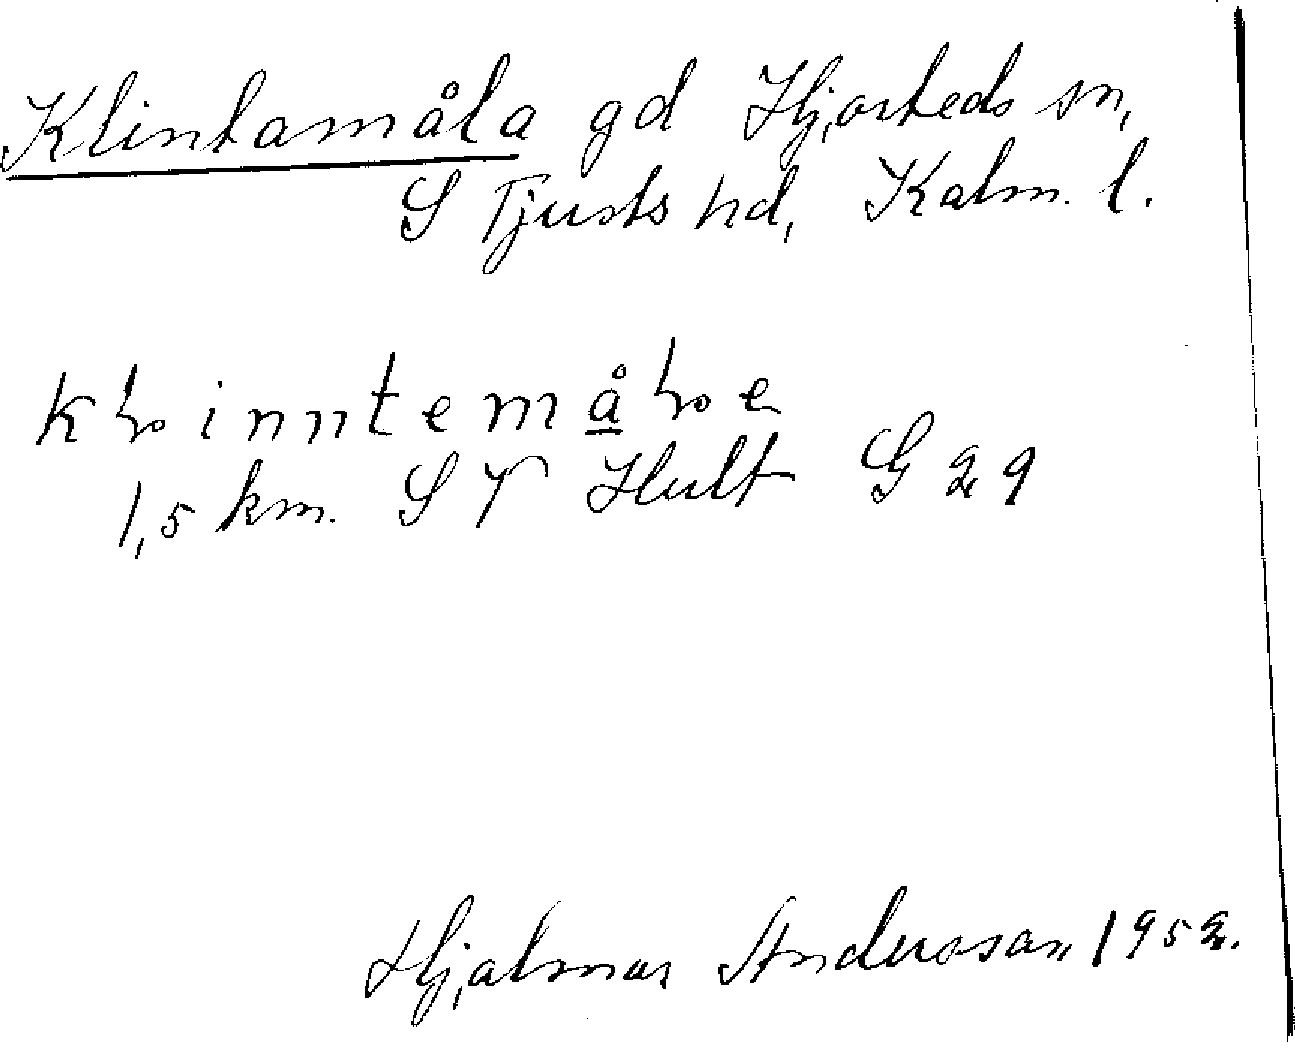 Klintamåla gd Hjorteds sn,
S Tjusts hd, Kalm. l.
kLinntemåLe
1,5 km. SV Hult G 29
Hjalmar Andersson 1952.